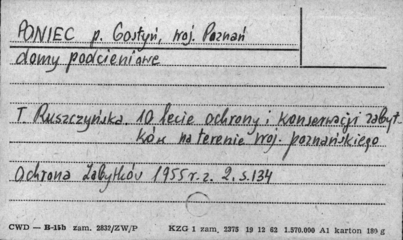 PONIEC p. Gostyń, woj. Poznań
domy podcieniowe
T. Ruszczyńska. 10 lecie ochrony i konserwacji zabyt
ków na terenie woj. poznańskiego
Ochrona Zabytków 1955 r. z. 2. s. 134
CWD — H-15b zam. 2832/ZW/P KZG 1 zam. 2375 19 12 62 1.570.000 A1 karton 180 g